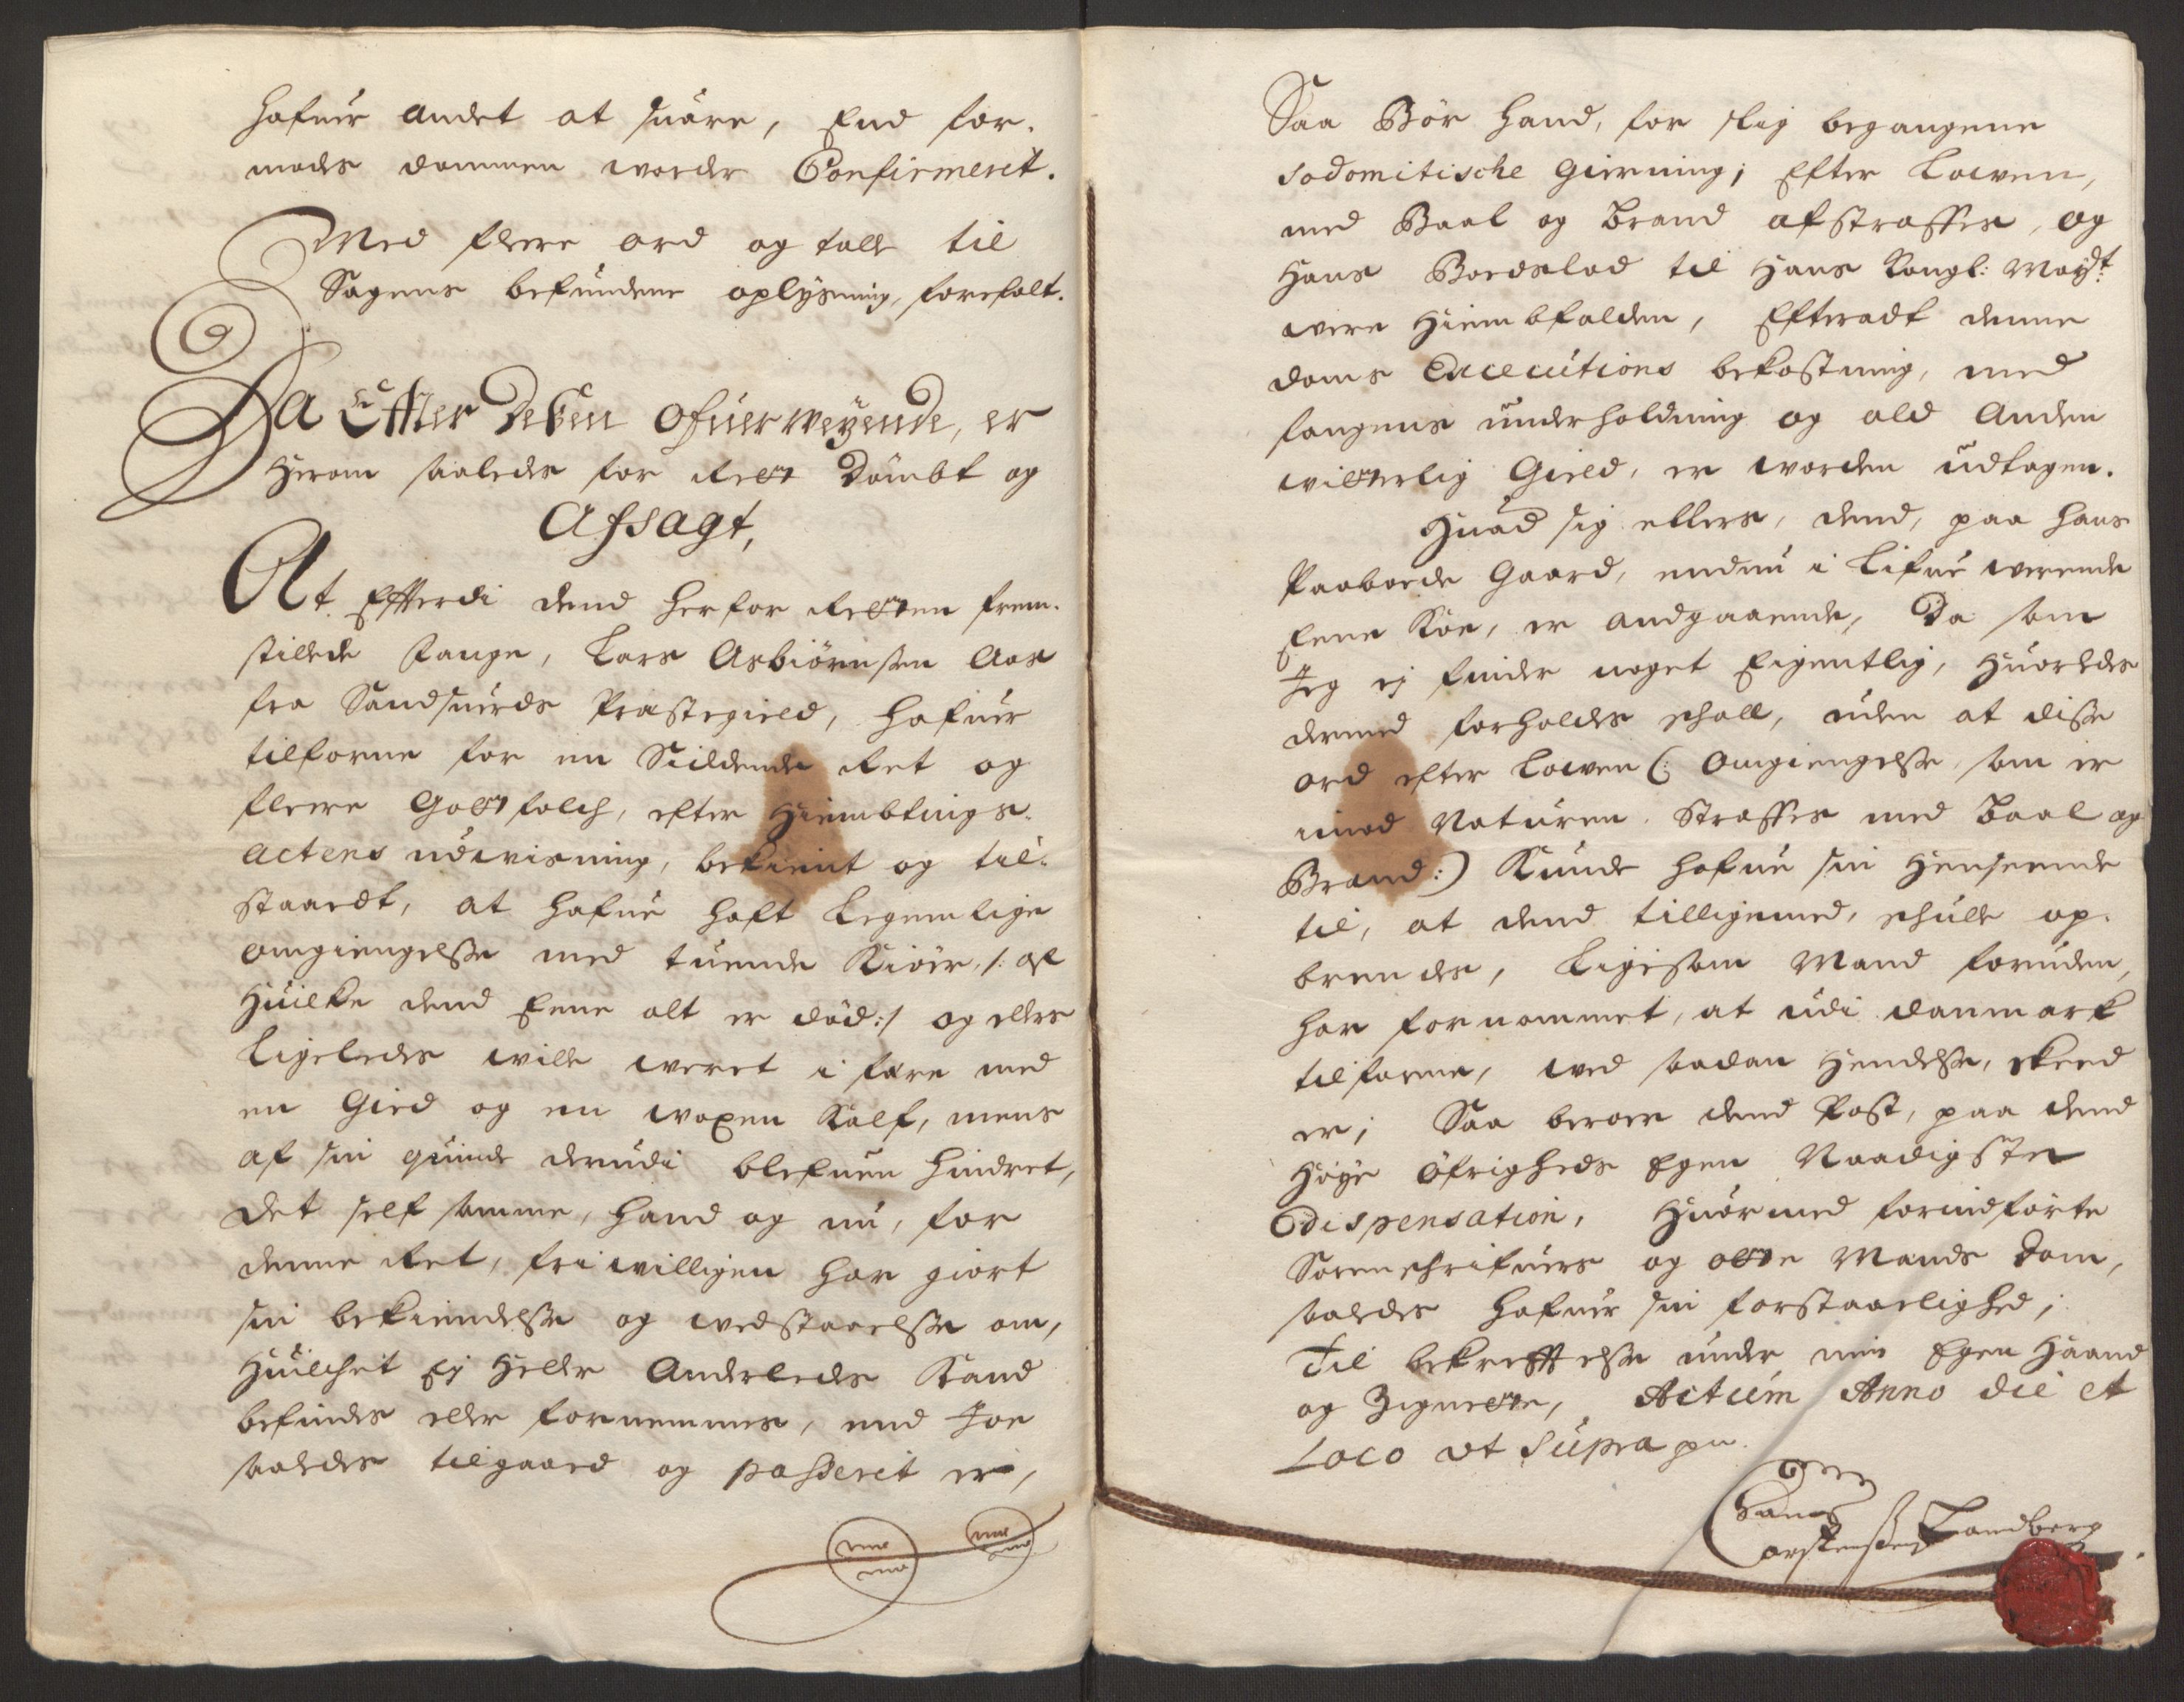 hafuer andet at suare, End for-
modr dommen worder Confirmerit.
Med flere ord og talle til
Sagens befundene oplysning, forefalt.
Da Effter deßen ofuerweyende, er
Herom saaledes for Rett Dömbt og
Afsagt,
At Efterdi dend her for Retten frem-
stillede Fange, Lars Asbiörnsen Aas
fra Sandsuerds Præstegield, hafuer
tilforne for en Siddende Ret og
fleere Gottfolch, efter Hiembtings
actens udwisning, bekient og til-
staaedt, at hafue haft Legemlige
omgiengelsse med tuende Kiöer, /: af
Huilke dend Eene alt er död:/ og ellers
Ligeledes wille weret i fære med
en Gied og en woxen Kalf, mens
af sin quinde derudi blefuen hindret,
Det self samme, hand og nu, for
denne Ret, friwilligen har giort
sin bekiendelsse og wedstaaelsse om,
Huilchet Ey Heller Anderledes Kand
befindes eller fornemmes, end Joe
saaledes tilgaaed og passerit er,
Saa Bör hand, for slig begangene
Sodomitische Gierning; Efter Lowen,
med Baal og Brand afstraffes, og
Hans Boedslod til Hans Kongl: Mayt:
were Hiembfalden, Efteradt denne
doms Executions bekostning, med
fangens underholdning og ald Anden
witterlig Gield, er worden udtagen.
Huad sig ellers, dend, paa hans
Paaboede Gaard, endnu i Lifue werende
Eene Koe, er andgaaende, Da som
Jeg ej finder noget Eigentlig, Huorledes
dermed forholdes schall, uden at disse
ord efter Lowen (: Omgiengelsse, som er
imod Naturen. Straffes med Baal og
Brand:) Kunde hafue sin Henseende
til, at dend tilligemed, schulle op-
brendes, Ligesom Mand foruden,
har fornommet, at udi Danmark
tilforne, wed saadan Hendelsse, skeed
er; Saa beroer dend Post, paa dend
Höye Öfrigheds Egen Naadigste
Dispensation, Huormed forindförte
Sorenschrifuers og otte Mands Dom,
saaledes hafuer sin forstaaelighed;
Til bekrefftelsse under min Egen Haand
og Zignette, Actum Anno die et
Loco ut Supra
Hans
Carstensen Landberg